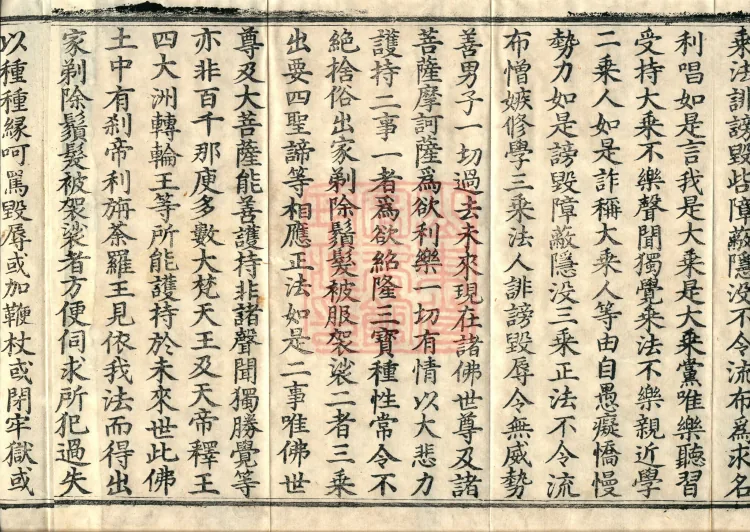 乘法誹謗毀呰障蔽隱没不令流布爲求名
利唱如是言我是大乘是大乘黨唯樂聽習
受持大乘不樂聲聞獨覺乘法不樂親近學
二乘人如是詐稱大乘人等由自愚癡憍慢
勢力如是謗毀障蔽隱没三乘正法不令流
布憎嫉修學三乘法人誹謗毀辱令無威勢
善男子一切過去未來現在諸佛世尊及諸
菩薩摩訶薩爲欲利樂一切有情以大悲力
護持二事一者爲欲紹隆三寶種性常令不
絶捨俗出家剃除鬚髮被服袈裟二者三乘
出要四聖諦等相應正法如是二事唯佛世
尊及大菩薩能善護持非諸聲聞獨勝覺等
亦非百千那庾多數大梵天王及天帝釋王
四大洲轉輪王等所能護持於未來世此佛
土中有刹帝利旃荼羅王見依我法而得出
家剃除鬚髮被袈裟者方便伺求所犯過失
以種種緣呵罵毀辱或加鞭杖或閉牢獄或